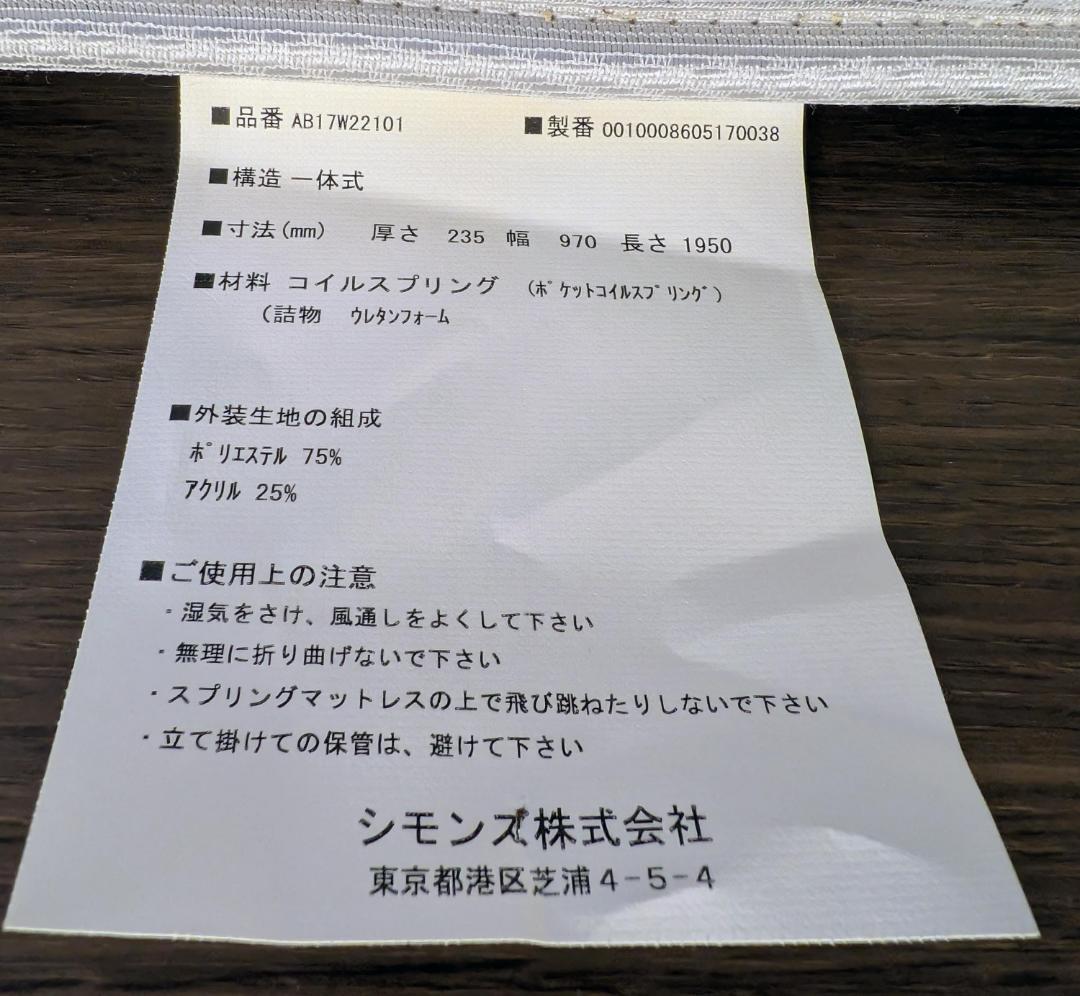 ■品番 AB17W22101 ■製番 0010008605170038
■構造 一体式
■寸法(mm) 厚さ 235 幅 970 長さ 1950
■材料 コイルスプリング (ﾎﾟｹｯﾄｺｲﾙｽﾌﾟﾘﾝｸﾞ)
(詰物 ｳﾚﾀﾝﾌｫｰﾑ
■外装生地の組成
ﾎﾟﾘｴｽﾃﾙ 75%
ｱｸﾘﾙ 25%
■ご使用上の注意
・湿気をさけ、風通しをよくして下さい
・無理に折り曲げないで下さい
・スプリングマットレスの上で飛び跳ねたりしないで下さい
・立て掛けての保管は、避けて下さい
シモンズ株式会社
東京都港区芝浦4-5-4